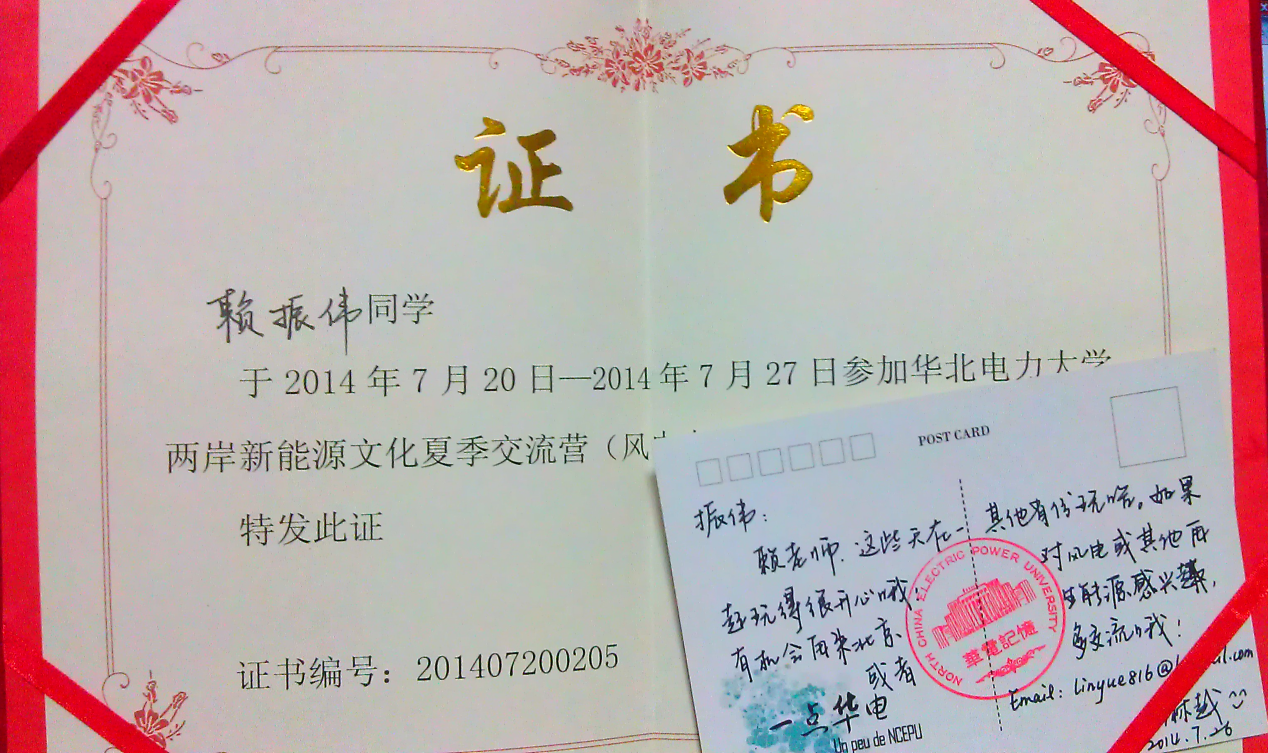 证书
赖振伟同学
于2014年7月20日—2014年7月27日参加华北电力大学
两岸新能源文化夏季交流营（风
特发此证
证书编号：201407200205
POST CARD
振伟：
赖老师：这些天在一
起玩得很开心哦，
有机会再来北京
或者
其他省份玩啥。如果
对风电或其他再
生能源感兴趣，
多交流哦！
Email: linyue816@
林越
2014.7.26
NORTH CHINA ELECTRIC POWER UNIVERSITY
華電記憶
一点华电
Un peu de NCEPU